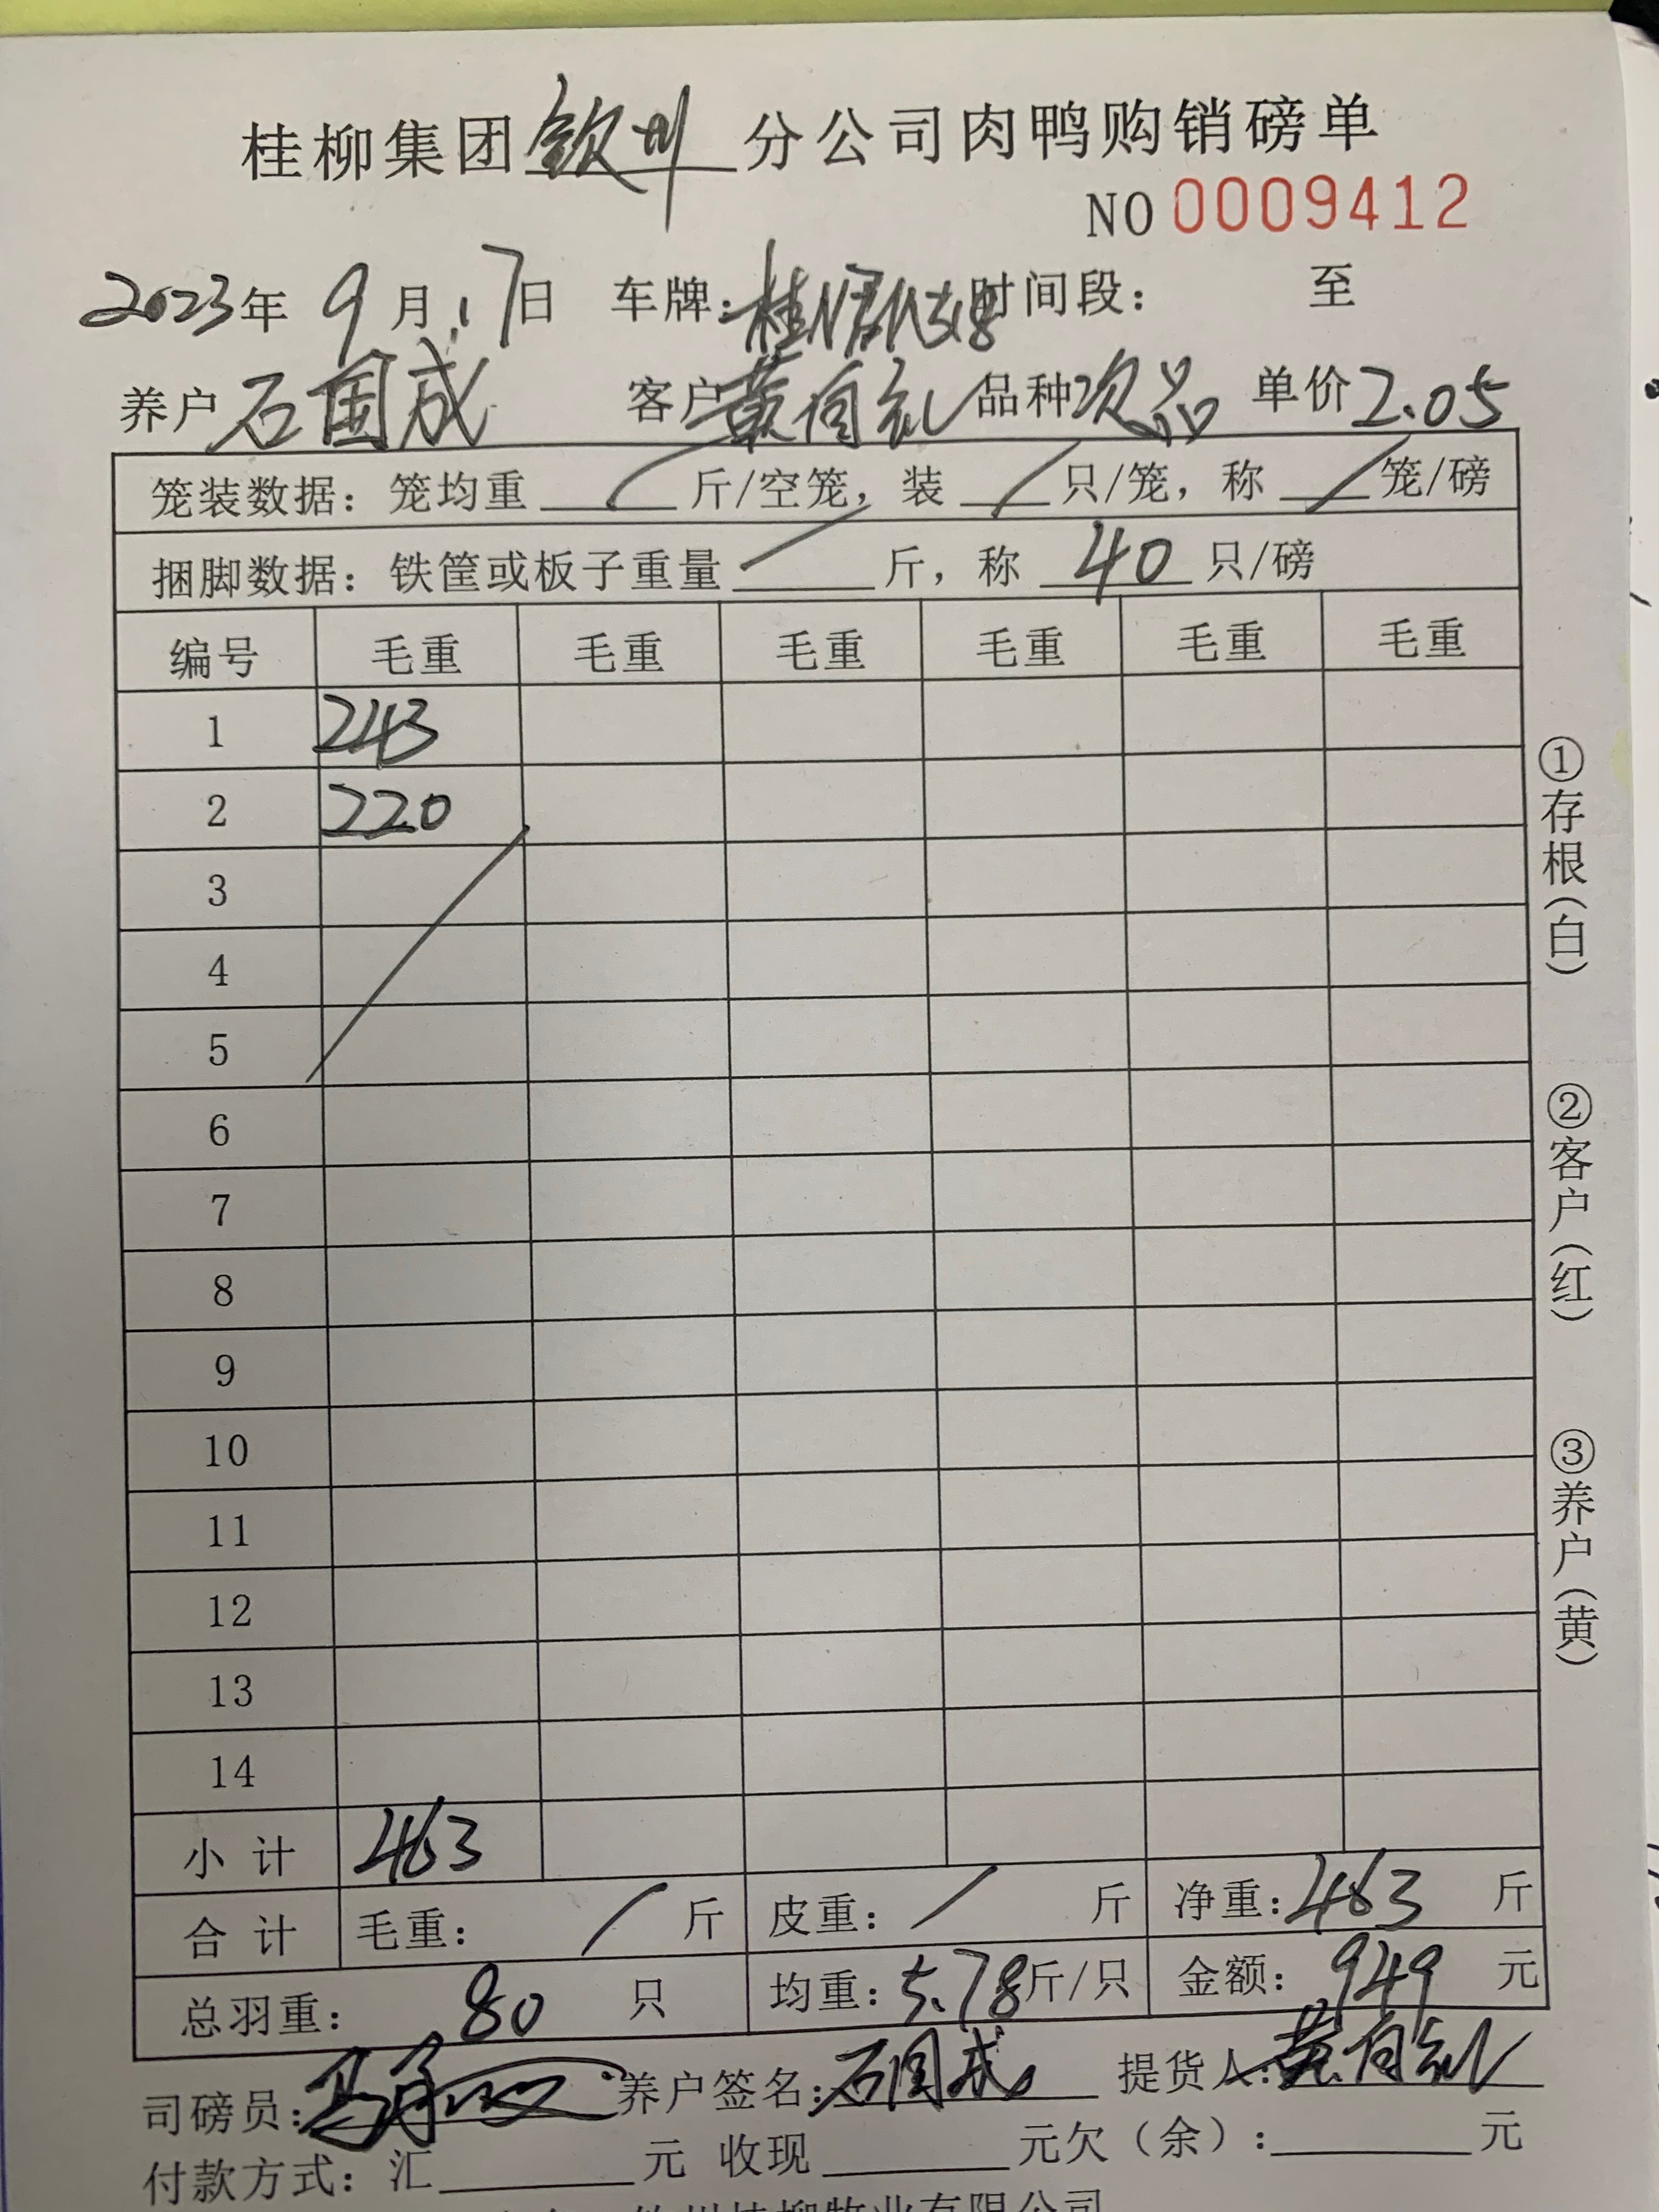 桂柳集团钦州分公司肉鸭购销磅单
NO 0009412
2023年 9月17日 车牌: 时间段: 至
养户 石国成 客户 黄有 品种 次品 单价 2.05
笼装数据: 笼均重 / 斤/空笼, 装 / 只/笼, 称 / 笼/磅
捆脚数据: 铁筐或板子重量 / 斤, 称 40 只/磅
编号 毛重 毛重 毛重 毛重 毛重 毛重
1 243
2 220
3
4
5
6
7
8
9
10
11
12
13
14
小计 463
合计 毛重: / 斤 皮重: / 斤 净重: 463 斤
总羽重: 80 只 均重: 5.78 斤/只 金额: 949 元
司磅员: 养户签名: 石国成 提货人: 黄有
付款方式: 汇 元 收现 元欠(余): 元
钦州桂柳牧业有限公司
①存根(白)
②客户(红)
③养户(黄)